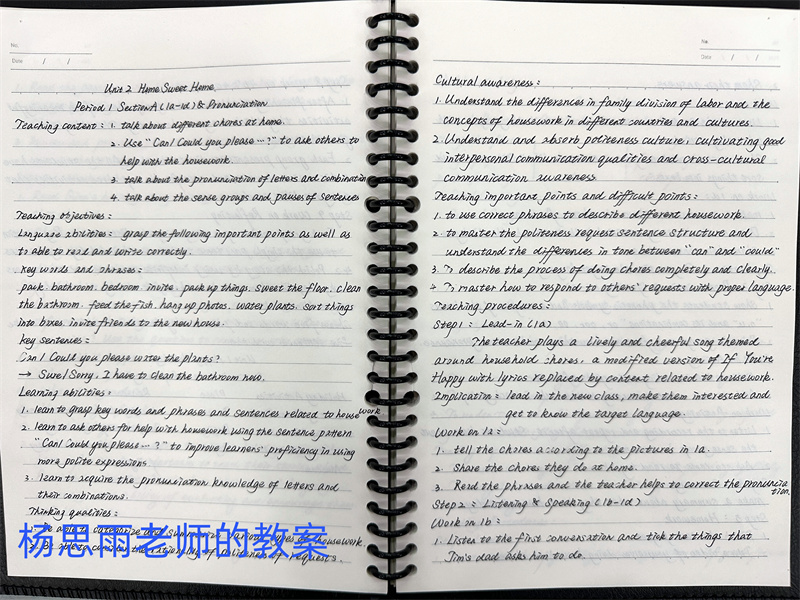 No.
Date / /
Unit 2 Home Sweet Home
Period 1 Section A (1a-1d) & Pronunciation
Teaching content: 1. talk about different chores at home.
2. Use "Can/Could you please ...?" to ask others to
help with the housework.
3. talk about the pronunciation of letters and combination
4. talk about the sense groups and pauses of sentences
Teaching objectives:
Language abilities: grasp the following important points as well as
to able to read and write correctly.
Key words and phrases:
pack. bathroom. bedroom. invite. pack up things. sweet the floor. clean
the bathroom. feed the fish. hang up photos. water plants. sort things
into boxes. invite friends to the new house.
Key sentences:
Can/Could you please water the plants?
→ Sure/Sorry. I have to clean the bathroom now.
Learning abilities:
1. learn to grasp key words and phrases and sentences related to housework
2. learn to ask others for help with housework using the sentence pattern
"Can/Could you please ...?" to improve learners' proficiency in using
more polite expressions
3. learn to acquire the pronunciation knowledge of letters and
their combinations.
Thinking qualities:
1. Be able to categorize and summarize various types of housework
2. Be able to the rationality of politeness of requests.
杨思雨老师的教案
No.
Date / /
Cultural awareness:
1. Understand the differences in family division of labor and the
concepts of housework in different countries and cultures.
2. Understand and absorb politeness culture, cultivating good
interpersonal communication qualities and cross-cultural
communication awareness.
Teaching important points and difficult points:
1. to use correct phrases to describe different housework.
2. to master the politeness request sentence structure and
understand the differences in tone between "can" and "could"
3. To describe the process of doing chores completely and clearly.
4. To master how to respond to others' requests with proper language.
Teaching procedures:
Step 1: Lead-in (1a)
The teacher plays a lively and cheerful song themed
around household chores, a modified version of If You're
Happy with lyrics replaced by content related to housework.
Implication: lead in the new class, make them interested and
get to know the target language.
Work on 1a:
1. tell the chores according to the pictures in 1a.
2. Share the chores they do at home.
3. Read the phrases and the teacher helps to correct the pronunciation.
Step 2: Listening & Speaking (1b-1d)
Work on 1b:
1. Listen to the first conversation and tick the things that
Jim's dad asks him to do.